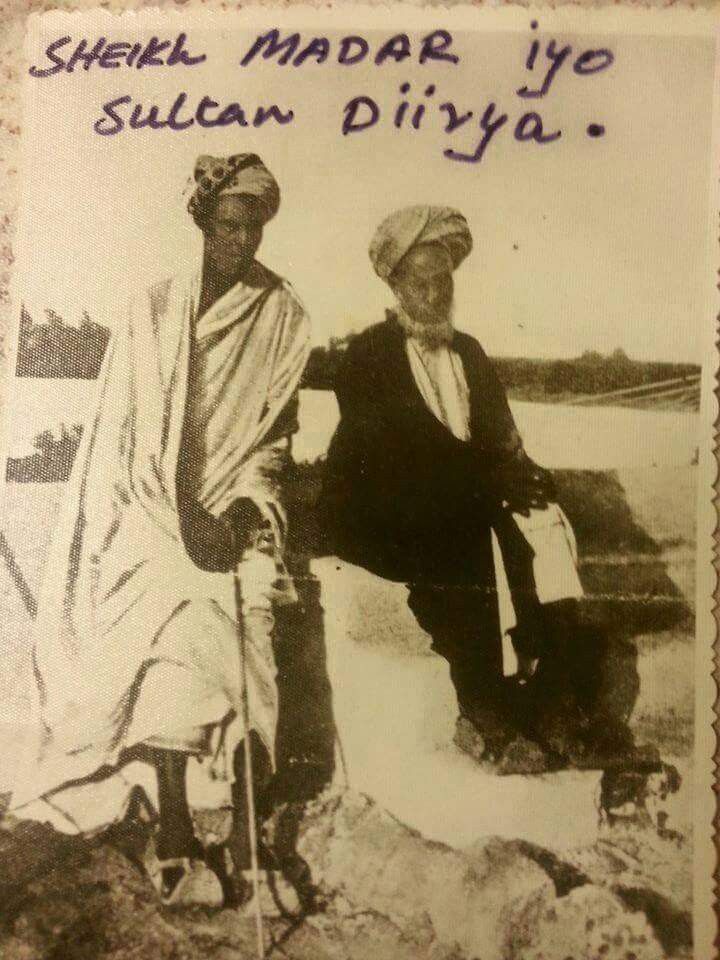 SHEIKh MADAR iyo
Sultan Diirya.